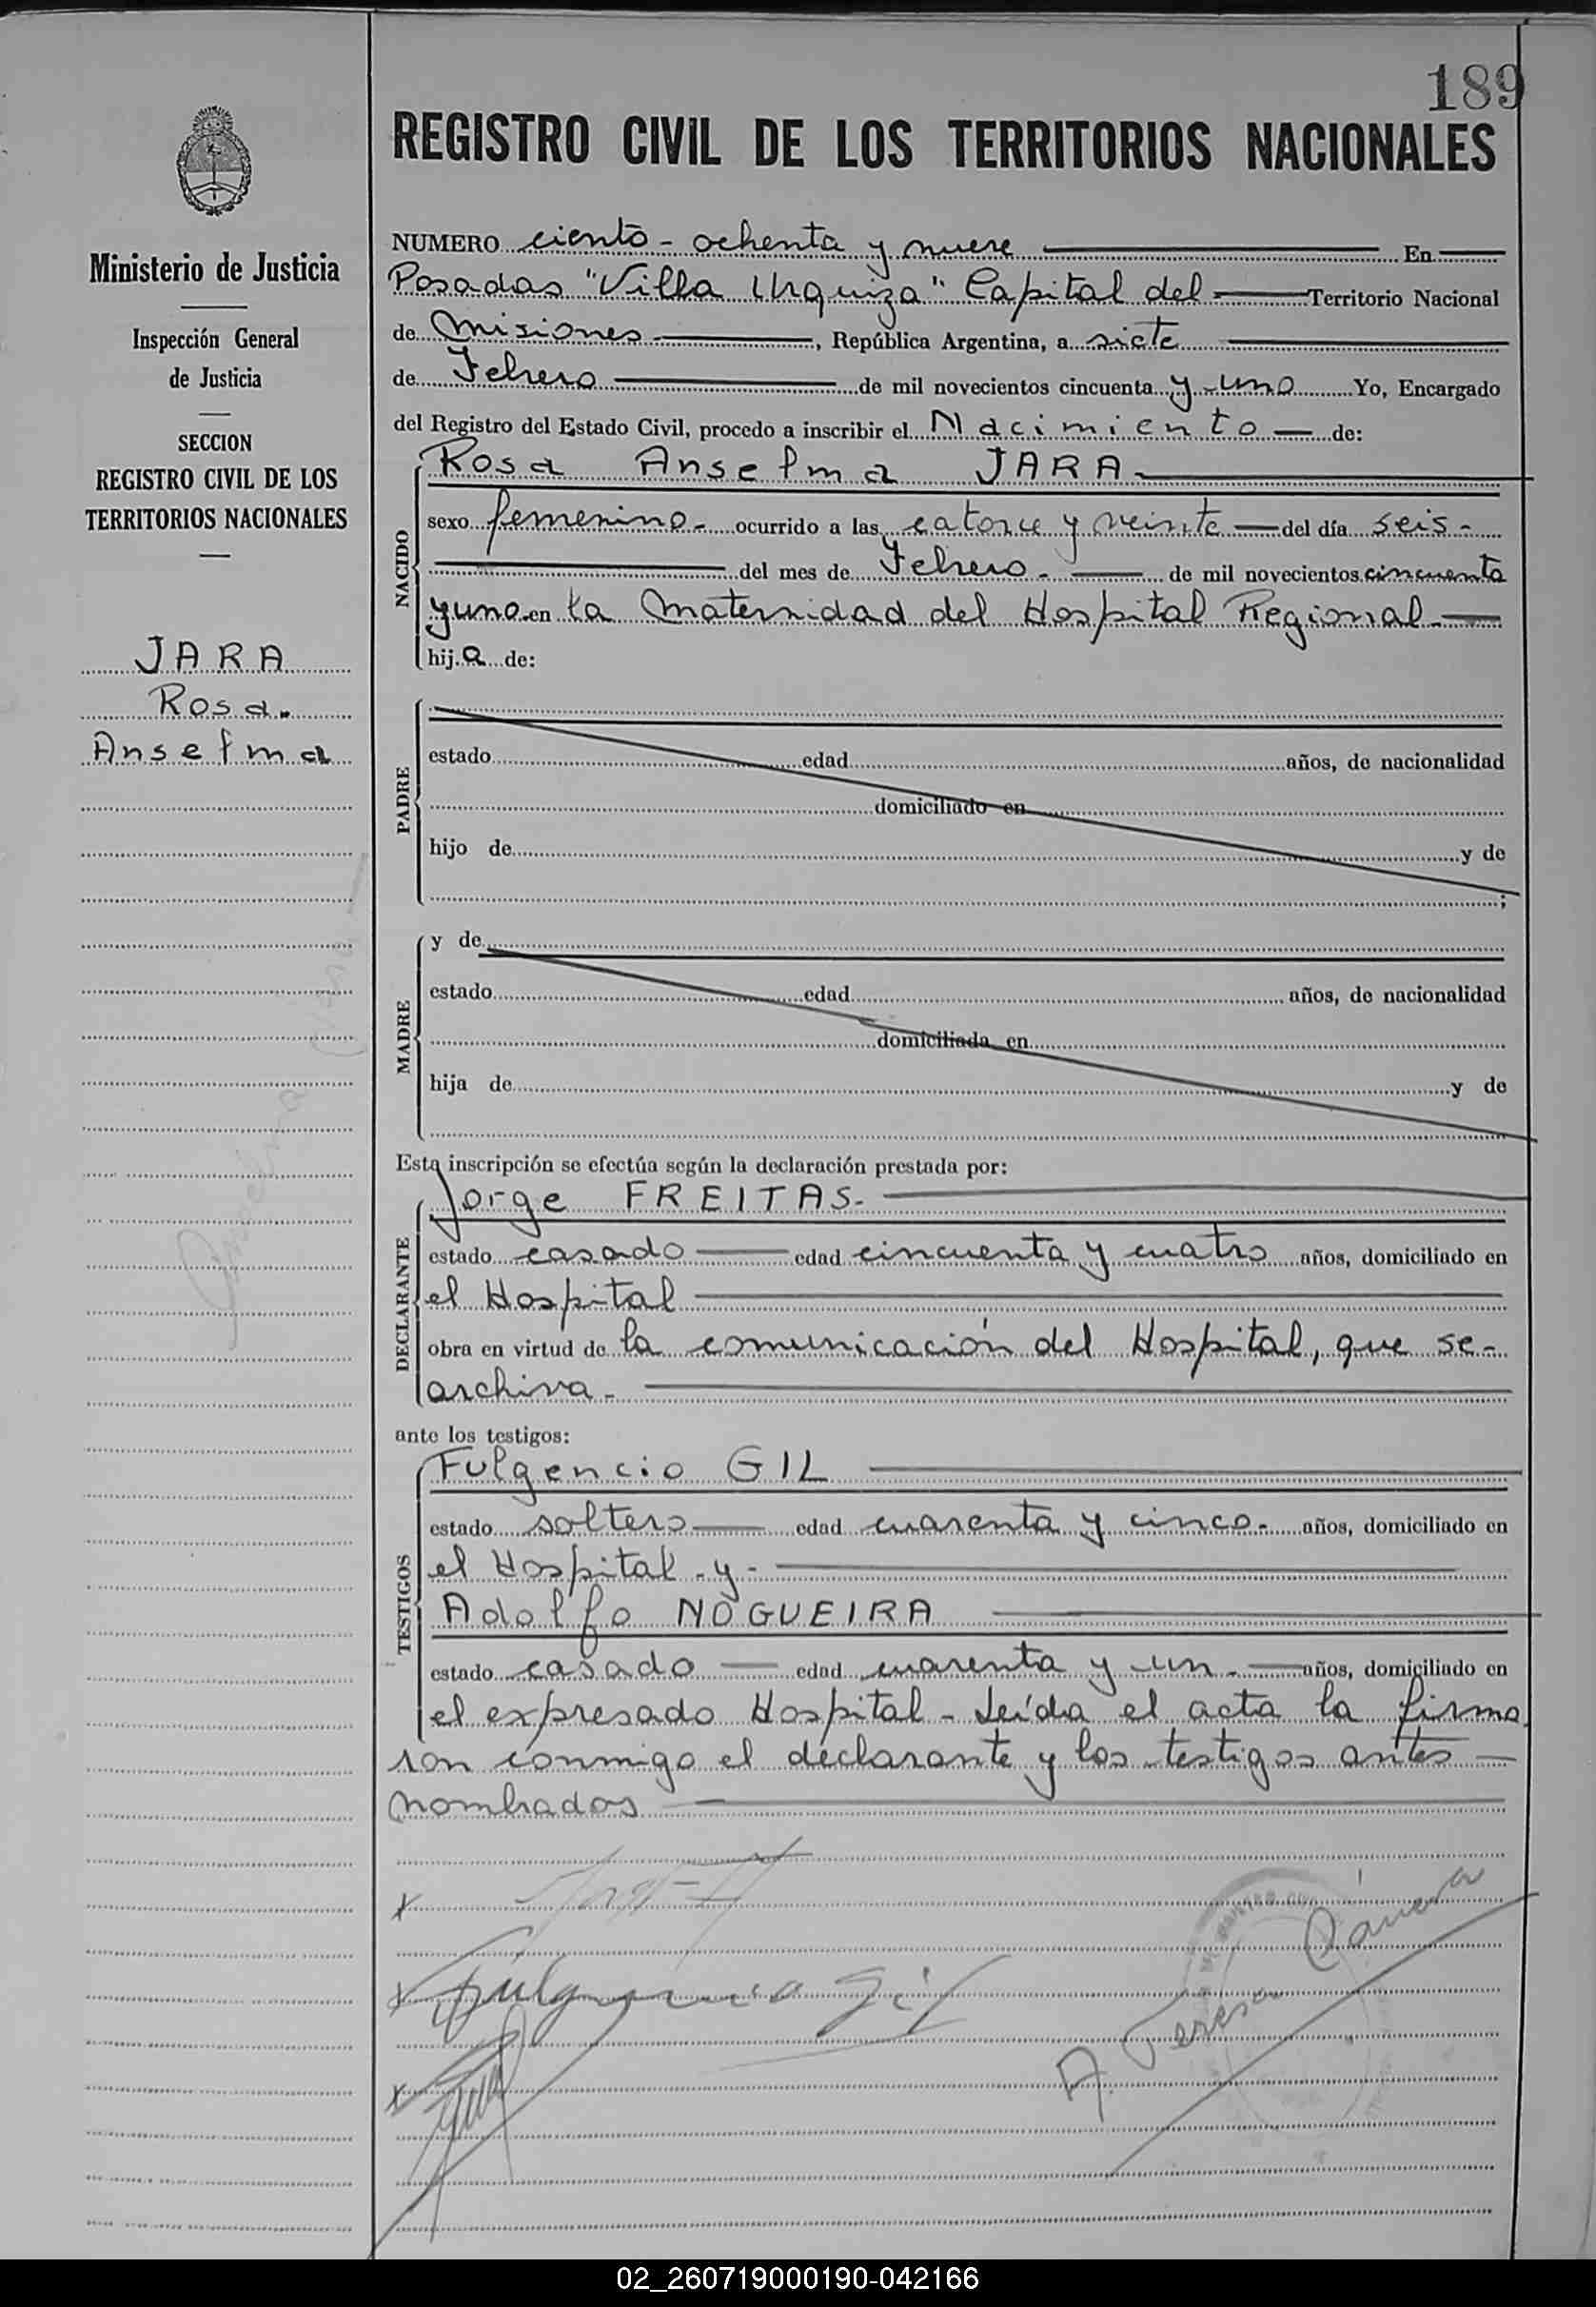 189
REGISTRO CIVIL DE LOS TERRITORIOS NACIONALES
Ministerio de Justicia
Inspección General
de Justicia
SECCION
REGISTRO CIVIL DE LOS
TERRITORIOS NACIONALES
JARA
Rosa.
Anselma
NUMERO ciento - ochenta y nueve En
Posadas "Villa Urquiza" Capital del Territorio Nacional
de Misiones, República Argentina, a siete
de Febrero de mil novecientos cincuenta y uno Yo, Encargado
del Registro del Estado Civil, procedo a inscribir el Nacimiento de:
NACIDO
Rosa Anselma JARA
sexo femenino ocurrido a las catorce y veinte del día seis
del mes de Febrero de mil novecientos cincuenta
y uno en la Maternidad del Hospital Regional
hija de:
PADRE
estado edad años, de nacionalidad
domiciliado en
hijo de y de
;
MADRE
y de
estado edad años, de nacionalidad
domiciliada en
hija de y de
Esta inscripción se efectúa según la declaración prestada por:
DECLARANTE
Jorge FREITAS.
estado casado edad cincuenta y cuatro años, domiciliado en
el Hospital
obra en virtud de la comunicación del Hospital, que se
archiva.
ante los testigos:
TESTIGOS
Fulgencio GIL
estado soltero edad cuarenta y cinco años, domiciliado en
el Hospital y
Adolfo NOGUEIRA
estado casado edad cuarenta y un años, domiciliado en
el expresado Hospital - Leída el acta la firma
ron conmigo el declarante y los testigos antes
nombrados
x
x Fulgencio Gil
x
A. Teresa
02_260719000190-042166